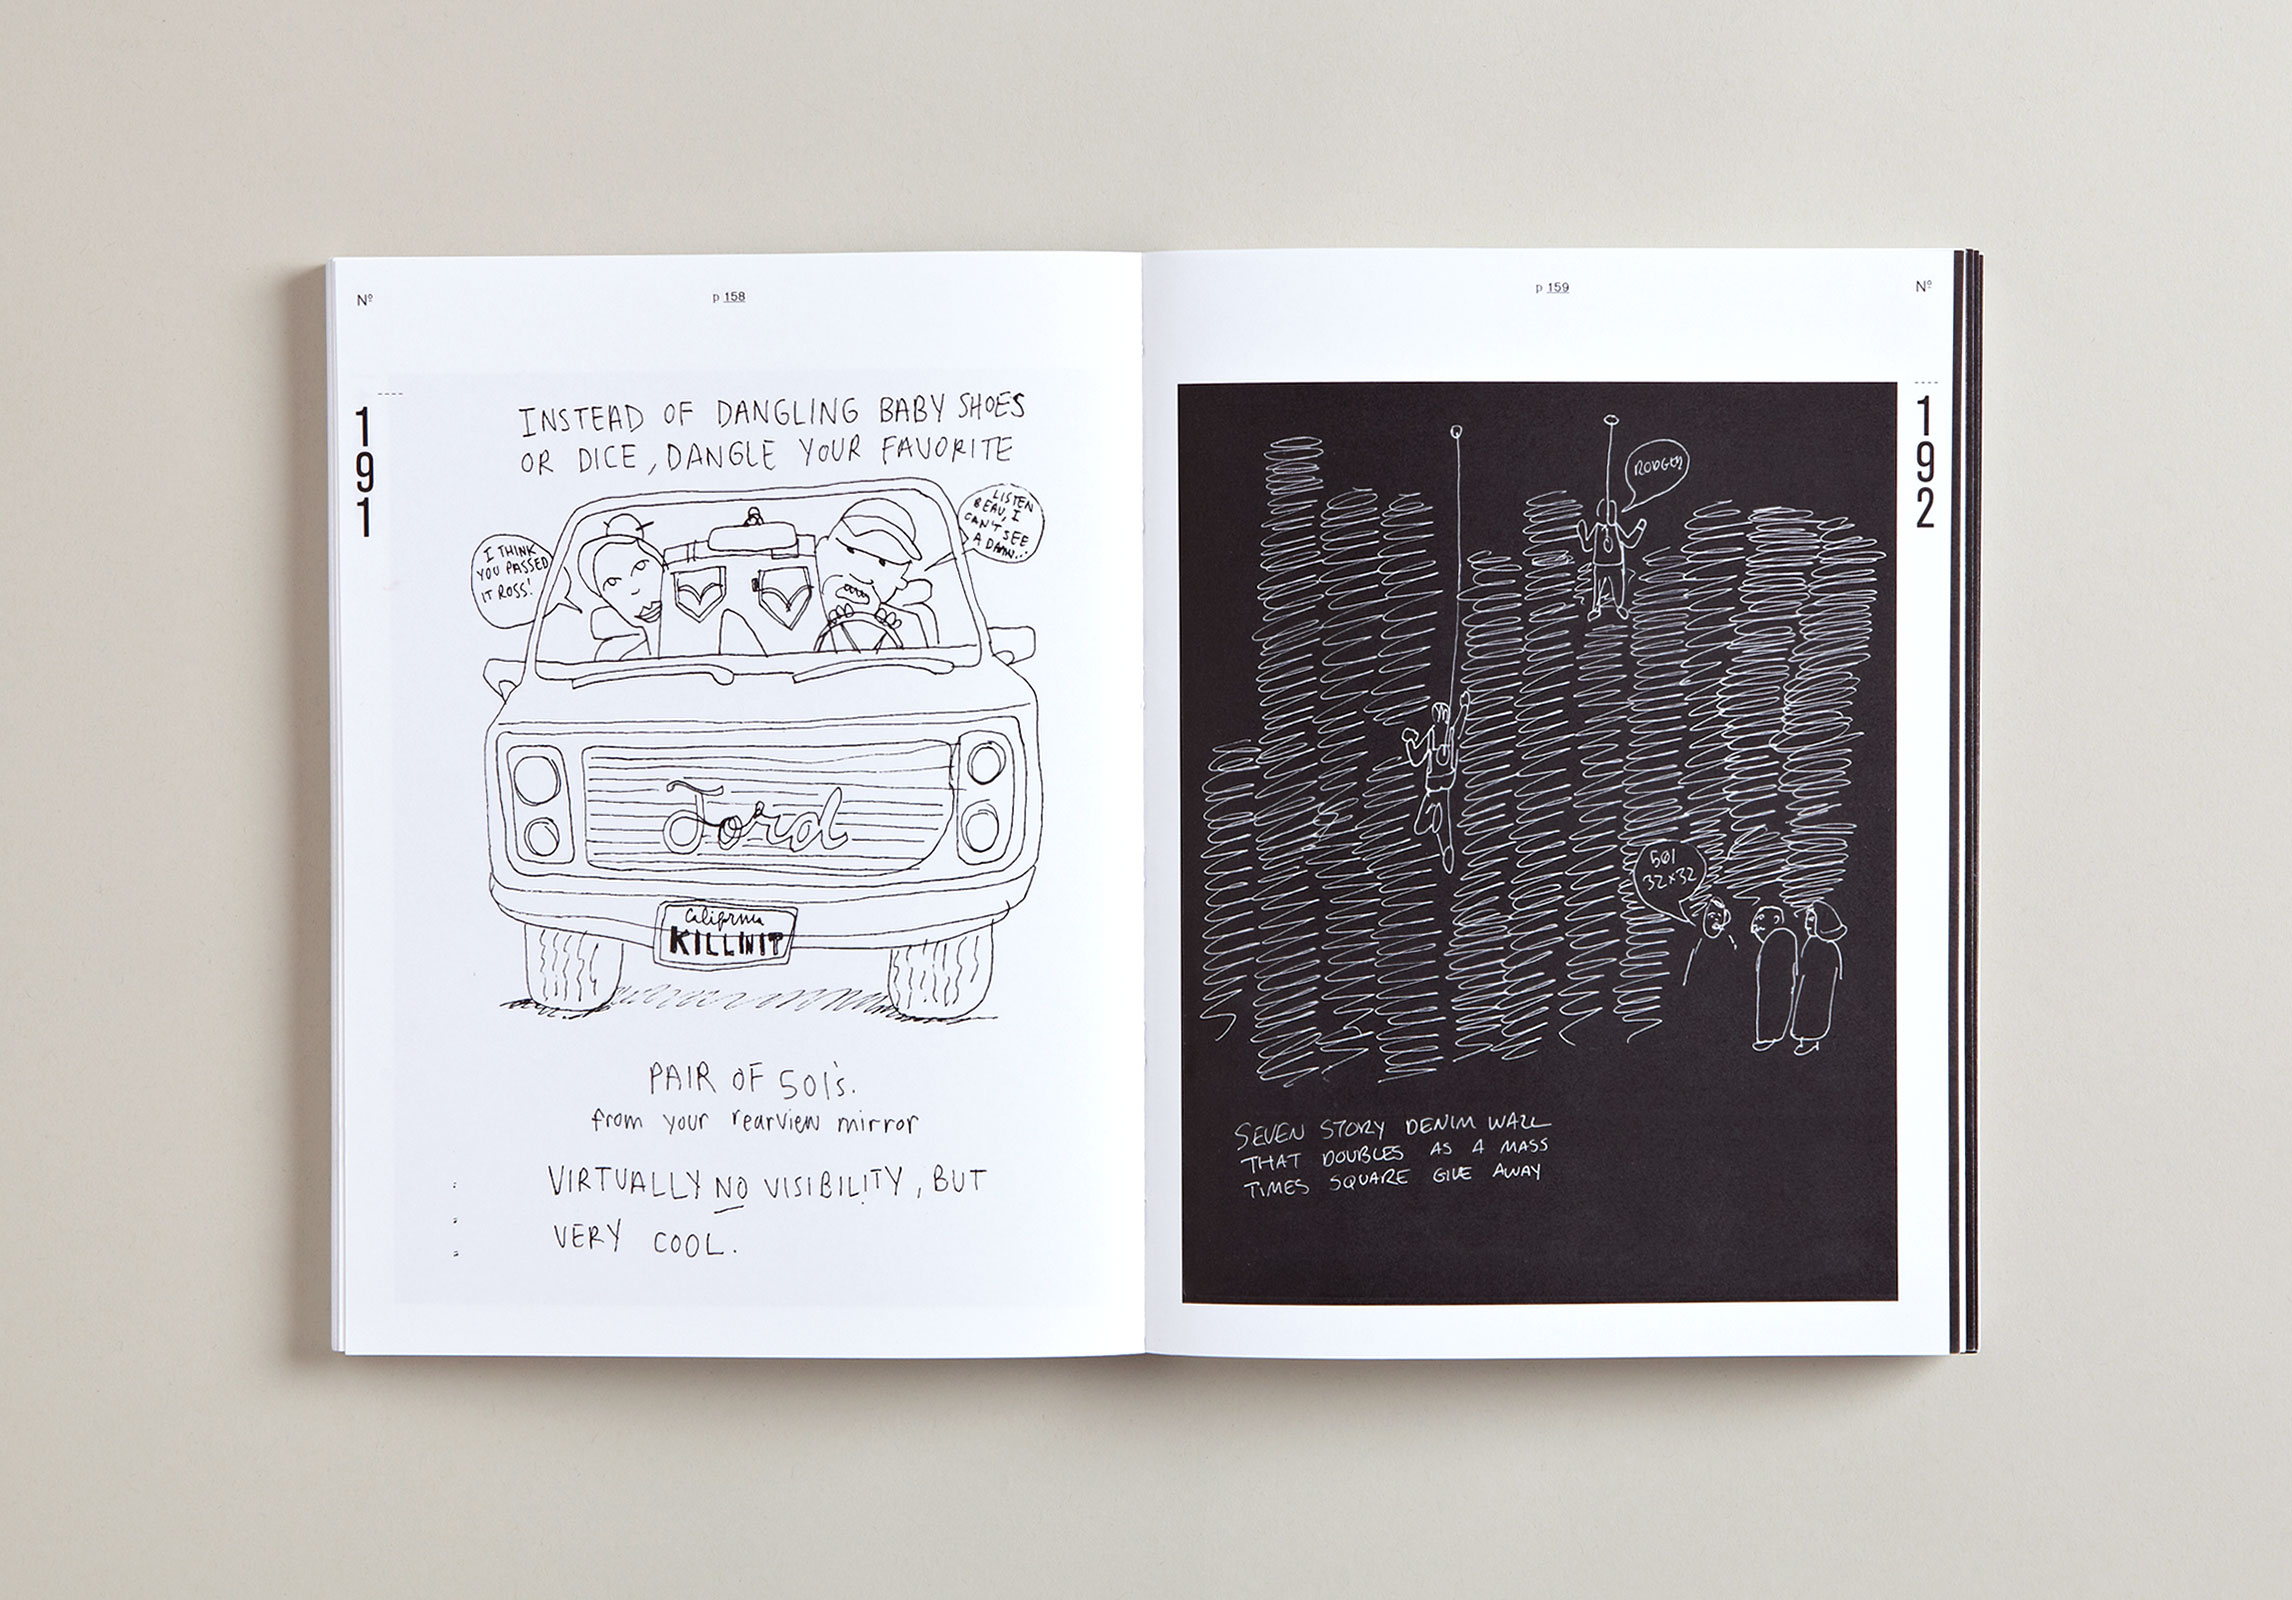 Nº
p 158
191
INSTEAD OF DANGLING BABY SHOES
OR DICE, DANGLE YOUR FAVORITE
I THINK
YOU PASSED
IT ROSS!
LISTEN
BEAU, I
CAN'T SEE
A DAMN...
Ford
California
KILLINIT
PAIR OF 501's.
from your rearview mirror
VIRTUALLY NO VISIBILITY, BUT
VERY COOL.
p 159
Nº
192
RODGER
501
32x32
SEVEN STORY DENIM WALL
THAT DOUBLES AS A MASS
TIMES SQUARE GIVE AWAY